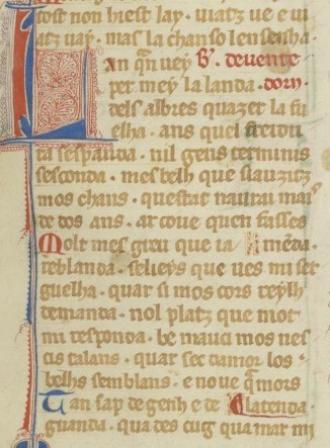 tost non hiest lay · uiatz ue e ui
atz uay · mas la chanso len senha ·
Lan q̃n uey B'. deuente
per mey la landa · dorn ·
dels albres quazer la fu
elha · ans quel freiou
ra sespanda · nil gens terminis
sesconda · mes belh que si auzitz
mos chans · questat naurai mais
de dos ans · ar coue quen fasses
Molt mes greu que ia mẽda ·
reblanda · selieys que ues mi ser
guelha · quar si mos cors reylh
demanda · nol platz que mot
mi responda · be mauci mos nes
cis talans · quar sec damor los ·
belhs semblans · e no ue q̃mors
Tan sap de genh e de latenda
guanda · qua des cug quamar mi